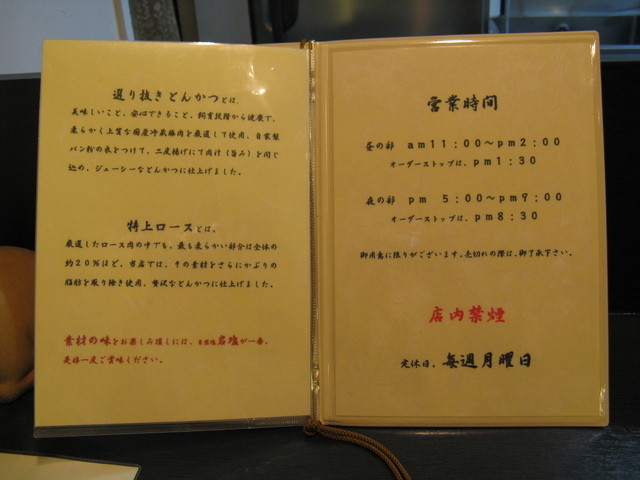 選り抜きとんかつとは、
美味しいこと、安心できること、飼育段階から健康で、
柔らかく上質な国産冷蔵豚肉を厳選して使用、自家製
パン粉の衣をつけて、二度揚げにて肉汁(旨み)を閉じ
込め、ジューシーなとんかつに仕上げました。
特上ロースとは、
厳選したロース肉の中でも、最も柔らかい部分は全体の
約20%ほど、当店では、その素材をさらにかぶりの
脂肪を取り除き使用、贅沢なとんかつに仕上げました。
素材の味をお楽しみ頂くには、自然塩岩塩が一番、
是非一度ご賞味ください。
営業時間
昼の部 am11:00〜pm2:00
オーダーストップは、pm1:30
夜の部 pm 5:00〜pm9:00
オーダーストップは、pm8:30
御用意に限りがございます。売切れの際は、御了承下さい。
店内禁煙
定休日、毎週月曜日